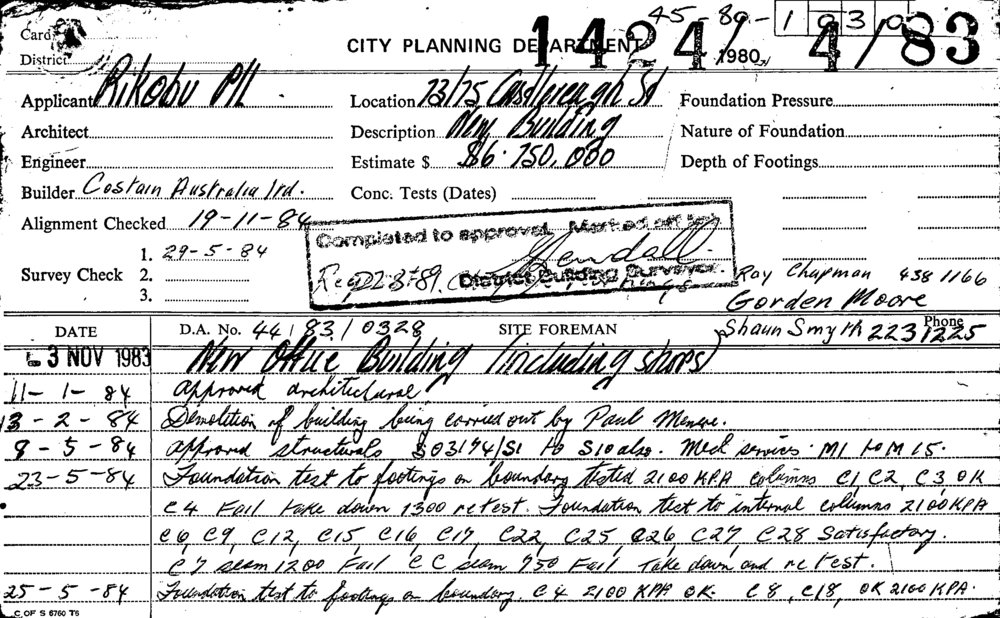 45-80-1030
Card
CITY PLANNING DEPARTMENT 1424/83
1980
District
Applicant Rikobu P/L
Location 73/75 Castlereagh St
Foundation Pressure
Architect
Description New Building
Nature of Foundation
Engineer
Estimate $ $6.750,000
Depth of Footings
Builder Costain Australia Ltd.
Conc. Tests (Dates)
Alignment Checked 19-11-84
Completed to approval. Marked off
Survey Check 1. 29-5-84
2.
3.
District Building Surveyor.
Ray Chapman 438 1166
Gorden Moore
DATE D.A. No. 44/83/0328 SITE FOREMAN Shaun Smyth Phone 2231225
3 NOV 1983 New Office Building (including shops)
11-1-84 Approved architectural
13-2-84 Demolition of building being carried out by Paul
8-5-84 Approved structurals S03194/S1 to S10 also. Mech services. M1 to M15.
23-5-84 Foundation test to footings on boundary tested 2100 KPA columns C1 C2, C3 OK
C4 Fail take down 1300 retest. Foundation test to internal columns 2100KPA
C6, C9, C12, C15, C16, C17, C22, C25, C26, C27, C28 Satisfactory.
C7 seam 1200 Fail C C seam 750 Fail Take down and retest.
25-5-84 Foundation test to footings on boundary. C4 2100 KPA OK. C8, C18, OK 2100 KPA.
C OF S 6760 T6